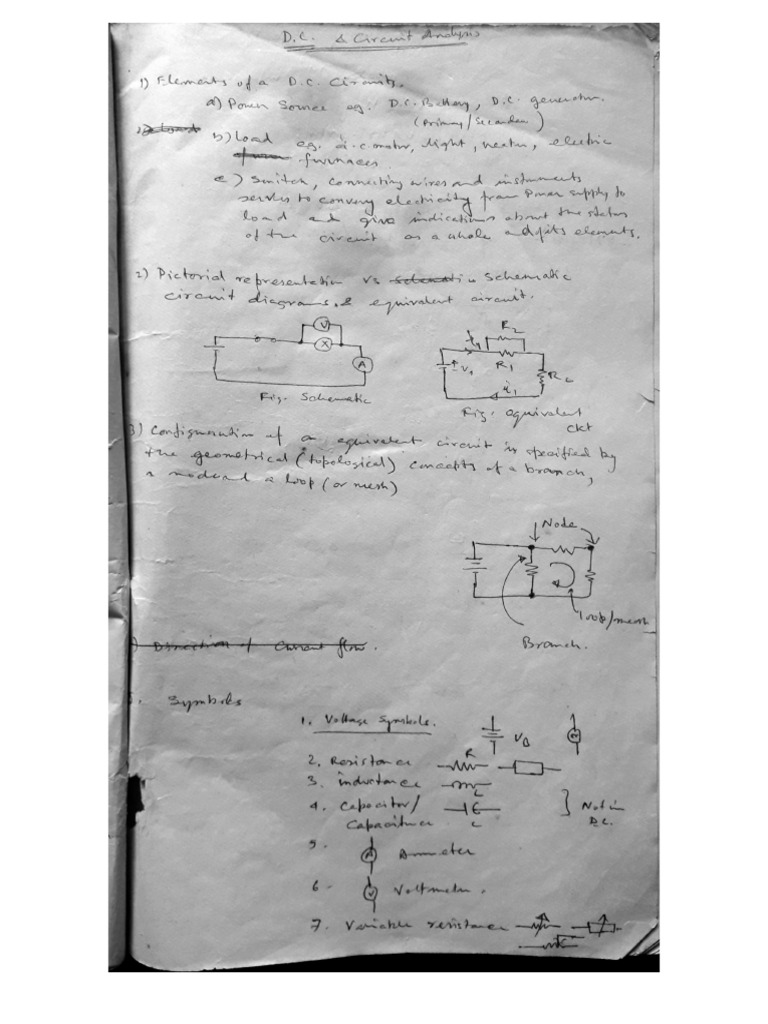 D.C. & Circuit Analysis
1) Elements of a D.C. Circuits.
a) Power Source eg. D.C. Battery, D.C. generator.
(Primary/Secondary)
b) Load eg. d.c. motor, light, heater, electric
furnaces.
c) Switch, connecting wires and instruments
serves to convery electricity from Power supply to
load and give indications about the status
of the circuit as a whole and its elements.
2) Pictorial representation vs schematic
circuit diagrams, & equivalent circuit.
V
X
A
R2
V1
R1
RL
i1
Fig. Schematic
Fig. equivalent
ckt
3) Configuration of an equivalent circuit is specified by
the geometrical (topological) concepts of a branch,
a node and a loop (or mesh)
Node
loop/mesh
Branch.
) Direction of Current flow.
5. Symbols
1. Voltage Symbols.
VB
2. Resistance R
3. inductance L
4. Capacitor/
Capacitance C
} Not in
D.C.
5. A Ammeter
6. V Voltmeter.
7. Variable resistance